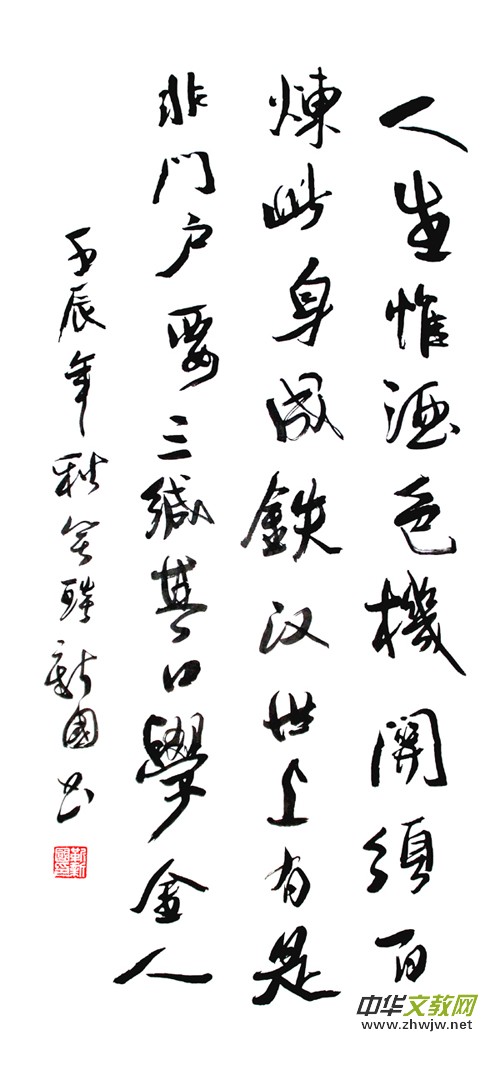 人生惟酒色機關須百
煉此身成鉄汉世上有是
非門户要三緘其口學金人
壬辰年秋 新國书
中华文教网
www.zhwjw.net